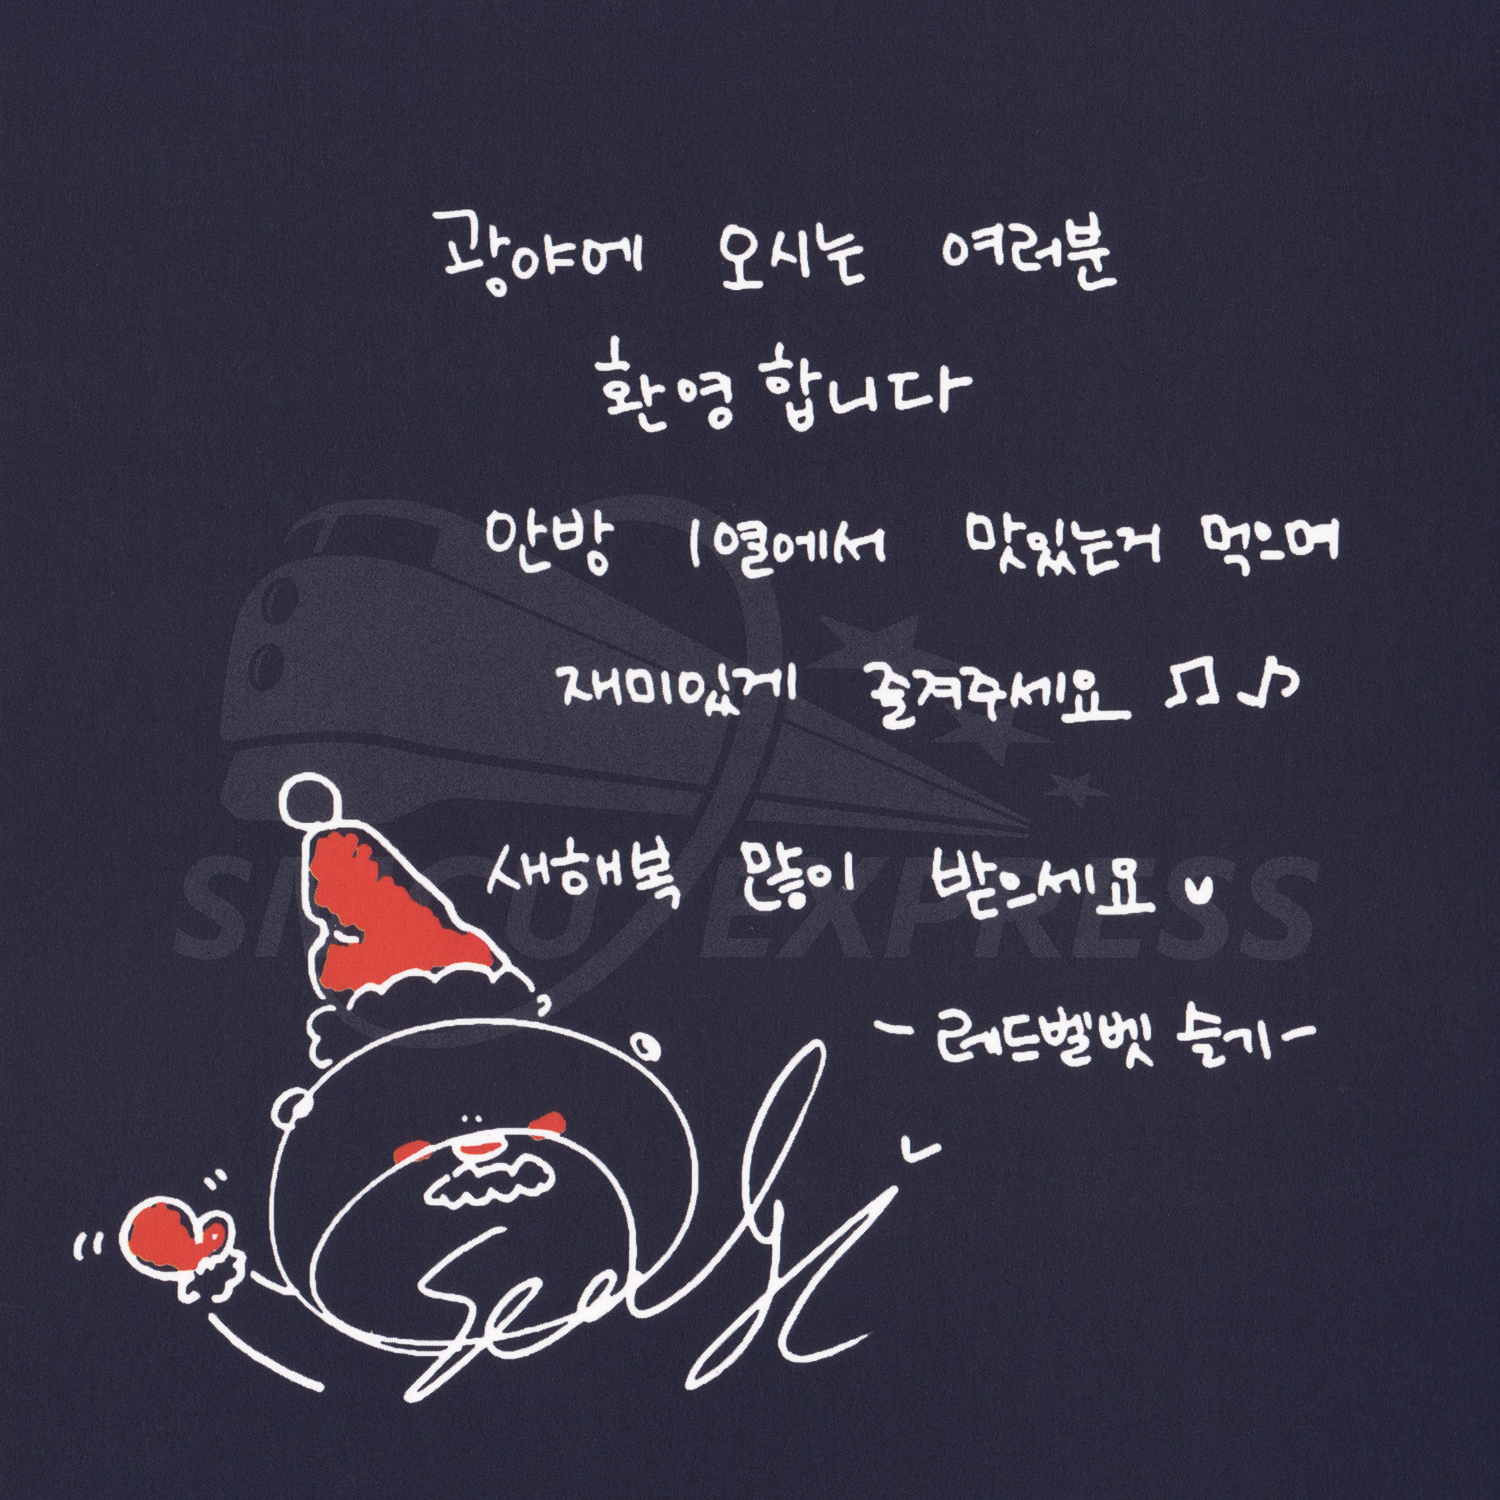 광야에 오시는 여러분
환영합니다
안방 1열에서 맛있는거 먹으며
재미있게 즐겨주세요 ♫ ♪
새해복 많이 받으세요
SMCU EXPRESS
- 레드벨벳 슬기 -
Seulgi